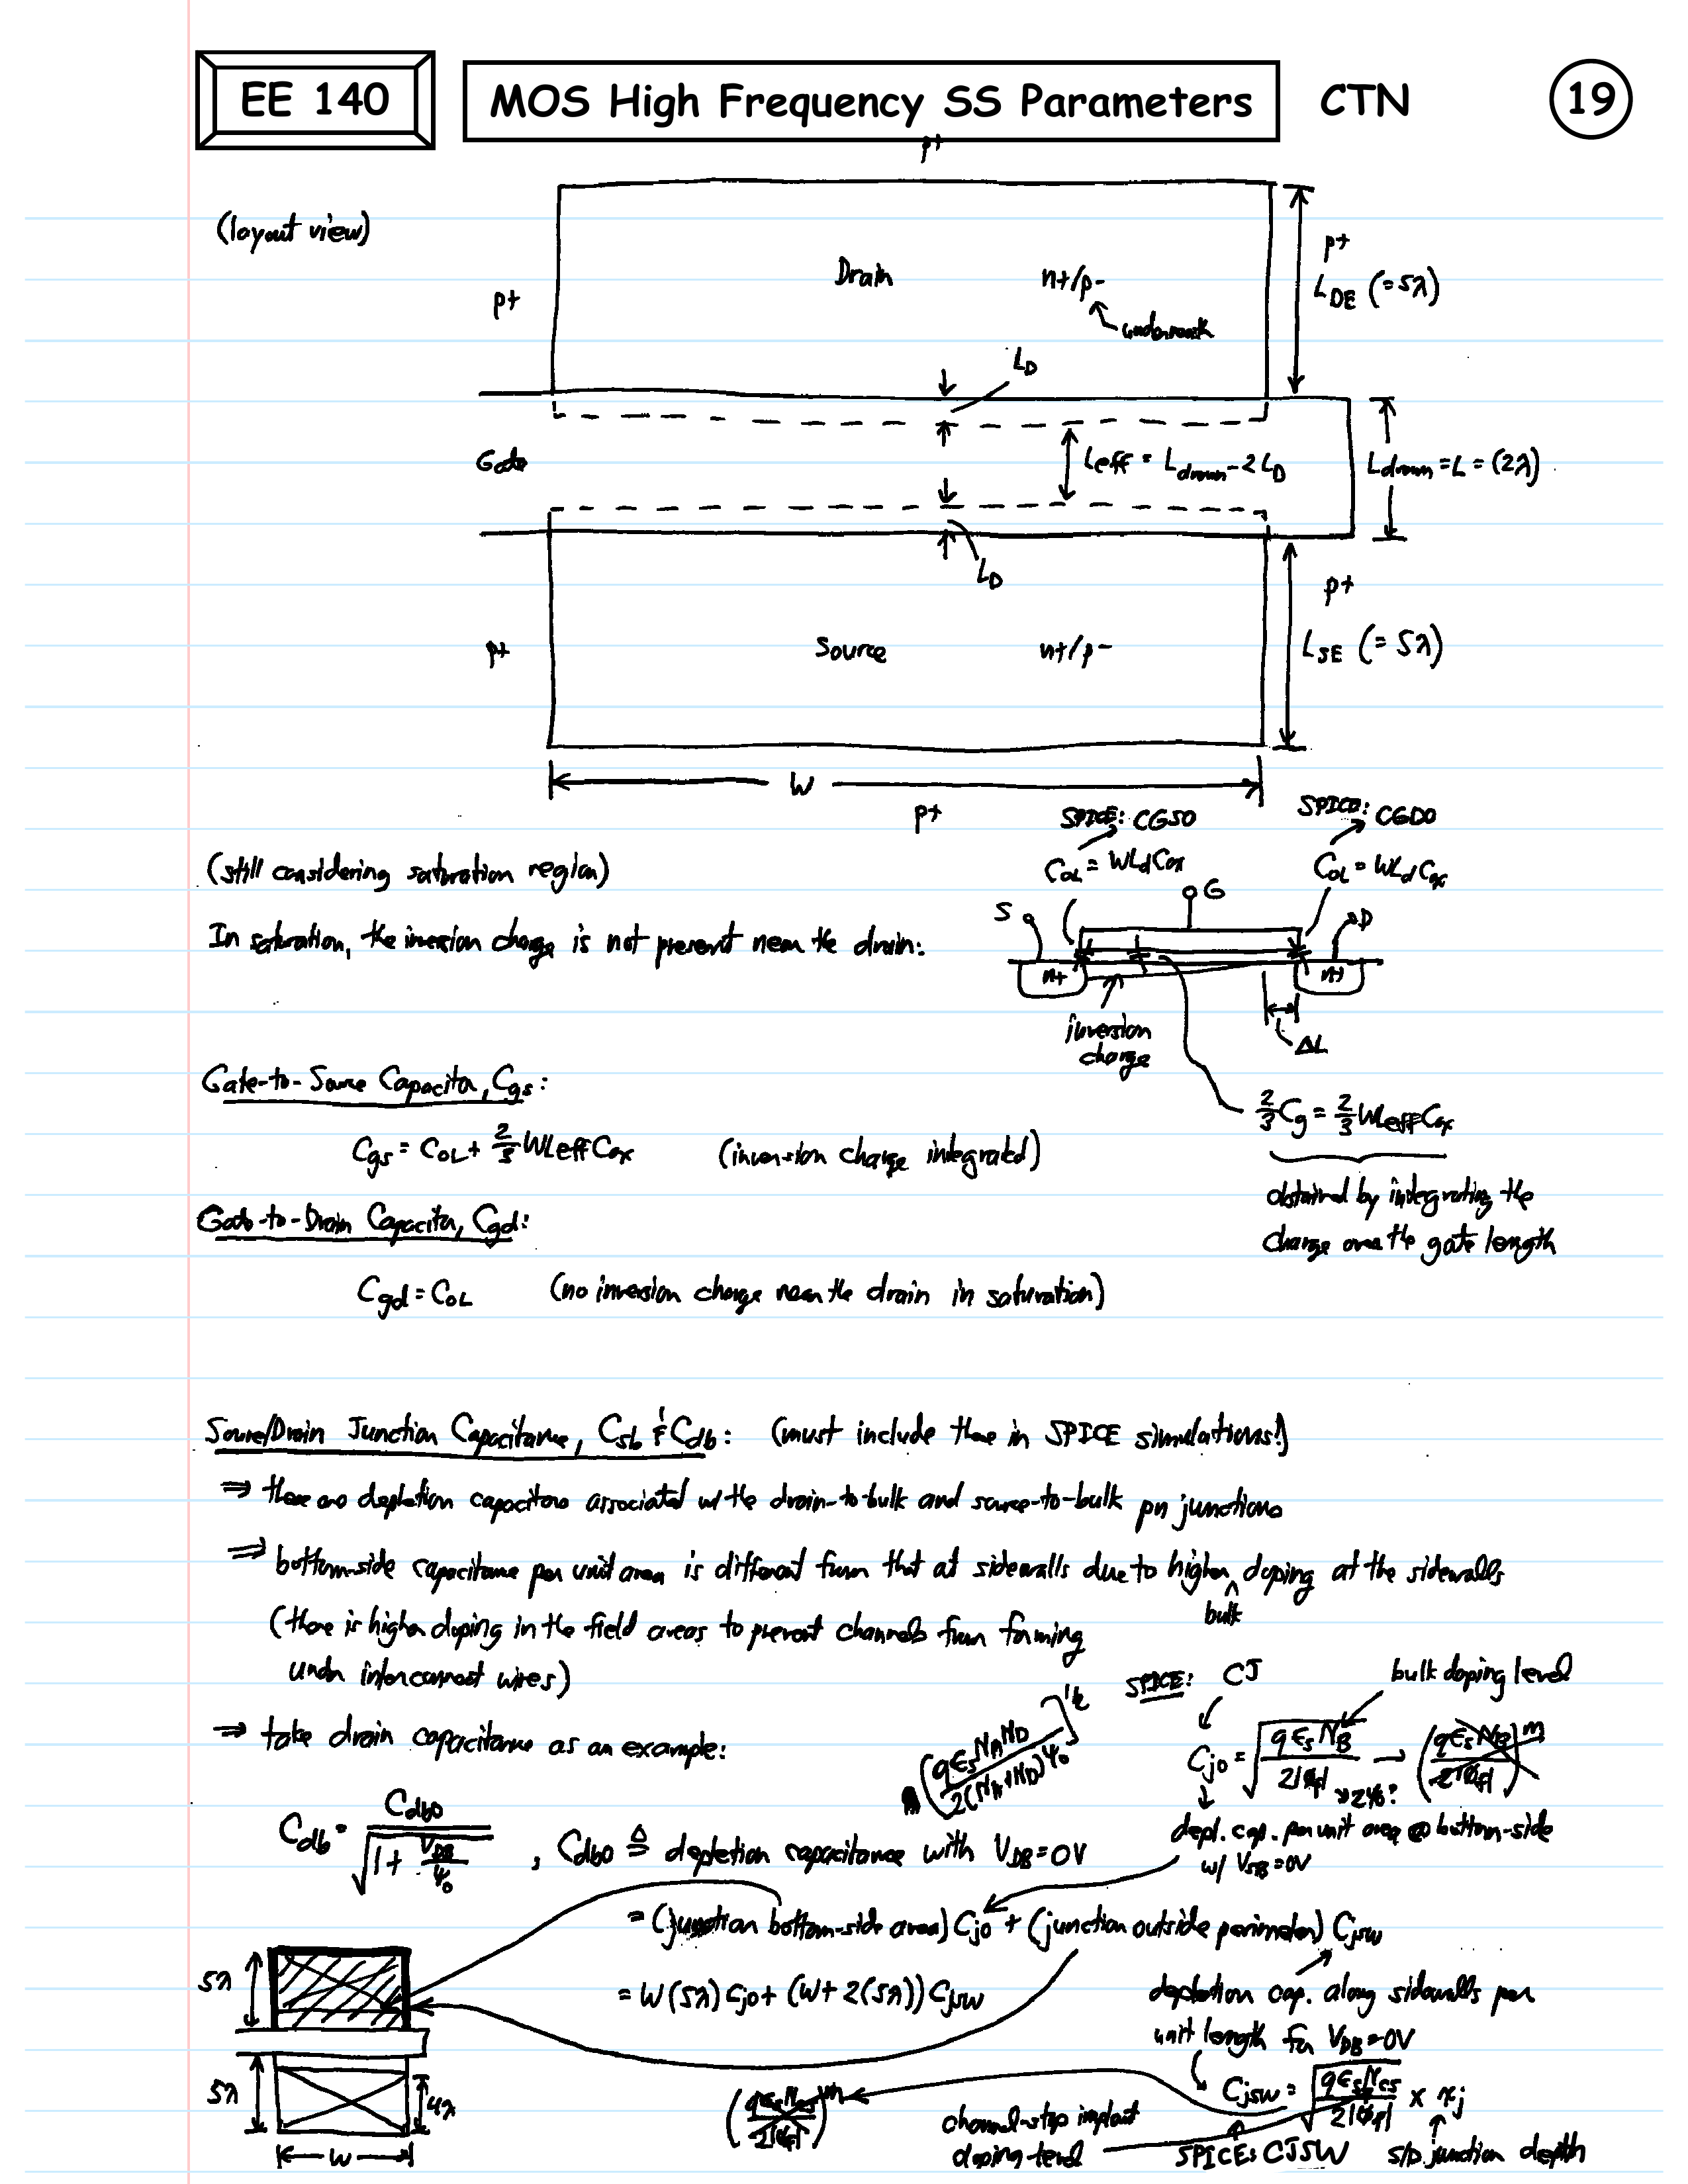 EE 140
MOS High Frequency SS Parameters
CTN
19
p+
(layout view)
p+
Drain
n+/p-
p+
L_DE (=5λ)
L_D
Gate
Leff = L_drawn - 2L_D
L_drawn = L = (2λ)
L_D
p+
p+
Source
n+/p-
L_SE (= 5λ)
W
p+
SPICE: CGSO
SPICE: CGDO
C_OL = WL_dCox
C_OL = WL_dCox
(still considering saturation region)
In saturation, the inversion charge is not present near the drain:
S
G
D
n+
n+
inversion
charge
ΔL
2/3 Cg = 2/3 WLeffCox
obtained by integrating the
charge over the gate length
Gate-to-Source Capacitor, Cgs:
Cgs = C_OL + 2/3 WLeffCox (inversion charge integrated)
Gate-to-Drain Capacitor, Cgd:
Cgd = C_OL (no inversion charge near the drain in saturation)
Source/Drain Junction Capacitance, Csb & Cdb: (must include these in SPICE simulations!)
⇒ these are depletion capacitors associated w/ the drain-to-bulk and source-to-bulk pn junctions
⇒ bottom-side capacitance per unit area is different from that at sidewalls due to higher bulk doping at the sidewalls
(there is higher doping in the field areas to prevent channels from forming
under interconnect wires)
⇒ take drain capacitance as an example:
(qε_s N_A N_D / 2(N_A+N_D)ψ_0)^1/2
SPICE: CJ
bulk doping level
Cjo = √(qε_s N_B / 2|φ_f|) → (qε_s N_B / 2|φ_f|)^m
→ 2ψ_0?
depl. cap. per unit area @ bottom-side
w/ V_SB = 0V
Cdb = Cdbo / √(1 + V_DB/ψ_0) , Cdbo ≜ depletion capacitance with V_DB = 0V
= (junction bottom-side area) Cjo + (junction outside perimeter) Cjsw
= W(5λ) Cjo + (W + 2(5λ)) Cjsw
depletion cap. along sidewalls per
unit length for V_DB = 0V
5λ
5λ
4λ
W
Cjsw = √(qε_s N_cs / 2|φ_f|) × x_j
(qε_s N_cs / 2|φ_f|)^m
channel-stop implant
doping level
SPICE: CJSW
S/D junction depth